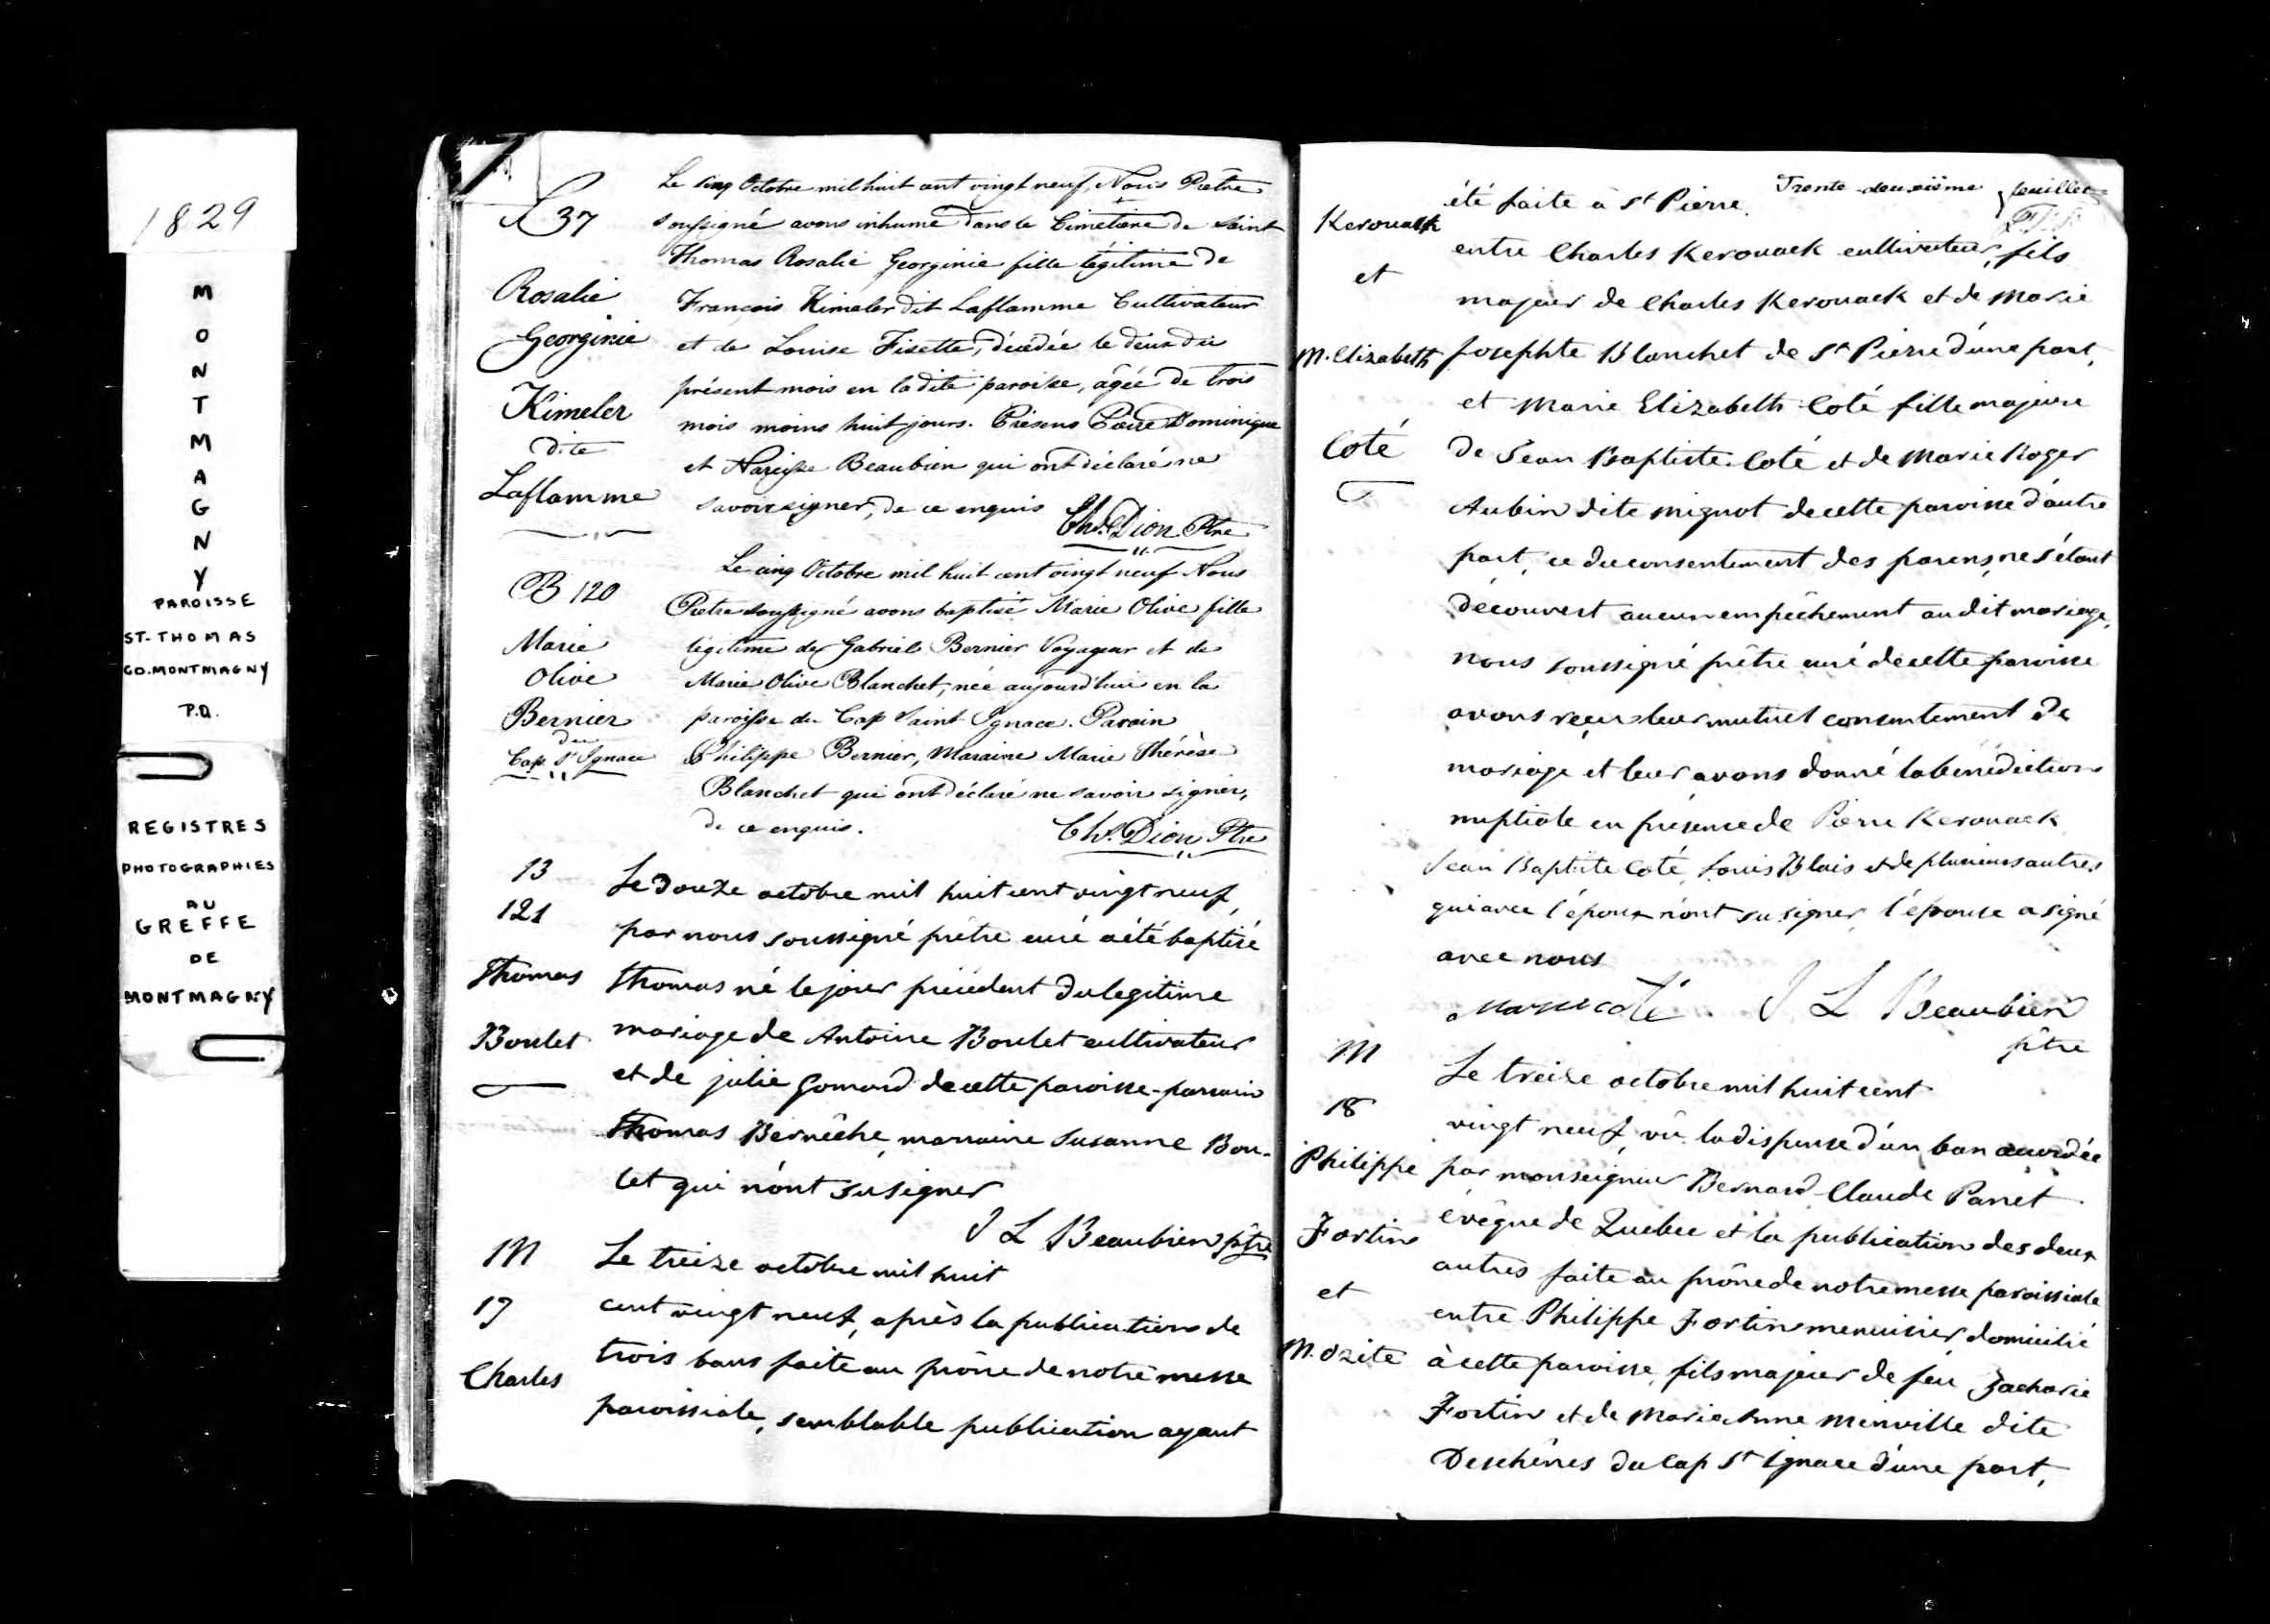 1829
MONTMAGNY
PAROISSE
ST-THOMAS
CO. MONTMAGNY
P.Q.
REGISTRES
PHOTOGRAPHIES
AU
GREFFE
DE
MONTMAGNY
S 37
Rosalie
Georginie
Kimeler
dite
Laflamme
Le cinq Octobre mil huit cent vingt neuf, Nous Prêtre
soussigné avons inhumé dans le Cimetière de Saint
Thomas Rosalie Georginie fille légitime de
Francois Kimeler dit Laflamme Cultivateur
et de Louise Fisette, décédée le deux du
présent mois en la dite paroisse, âgée de trois
mois moins huit jours. Présens Pierre Dominique
et Narcisse Beaubien qui ont déclaré ne
savoir signer, de ce enquis
Chs. Dion Ptre
B 120
Marie
Olive
Bernier
du
Cap St Ignace
Le cinq Octobre mil huit cent vingt neuf Nous
Prêtre soussigné avons baptisé Marie Olive fille
légitime de Gabriel Bernier Voyageur et de
Marie Olive Blanchet, née aujourd'hui en la
paroisse du Cap Saint Ignace. Parain
Philippe Bernier, Maraine Marie Thérèse
Blanchet qui ont déclaré ne savoir signer,
de ce enquis.
Chs. Dion Ptre
B
121
Thomas
Boulet
Le douze octobre mil huit cent vingt neuf,
par nous soussigné prêtre curé a été baptisé
thomas né le jour précédent du legitime
mariage de Antoine Boulet cultivateur
et de julie Gomond de cette paroisse - parrain
Thomas Bernêche, marraine Susanne Bou-
let qui n'ont su signer
J L Beaubien ptre
M
17
Charles
Le treize octobre mil huit
cent vingt neuf, après la publication de
trois bans faite au prône de notre messe
paroissiale, semblable publication ayant
Trente-deuxième feuillet
Kerouack
et
M. Elizabeth
Coté
été faite à St Pierre
entre Charles Kerouack cultivateur, fils
majeur de Charles Kerouack et de Marie
Josephte Blanchet de St Pierre d'une part,
et Marie Elizabeth Coté fille majeure
de Jean Baptiste Coté et de Marie Roger
Aubin dite mignot de cette paroisse d'autre
part, ce du consentement des parens, ne s'étant
découvert aucun empêchement au dit mariage,
nous soussigné prêtre curé de cette paroisse
avons reçu leur mutuel consentement de
mariage et leur avons donné la bénédiction
nuptiale en présence de Pierre Kerouack
Jean Baptiste Coté, Louis Blais et de plusieurs autres
qui avec l'époux n'ont su signer, l'épouse a signé
avec nous
marie coté
J L Beaubien
ptre
M
18
Philippe
Fortin
et
M. Ozite
Le treize octobre mil huit cent
vingt neuf, vû la dispense d'un ban accordée
par monseigneur Bernard-Claude Panet
évêque de Quebec et la publication des deux
autres faite au prône de notre messe paroissiale
entre Philippe Fortin menuisier, domicilié
à cette paroisse, fils majeur de feu Zacharie
Fortin et de Marie Anne Minville dite
Deschênes du Cap St Ignace d'une part,